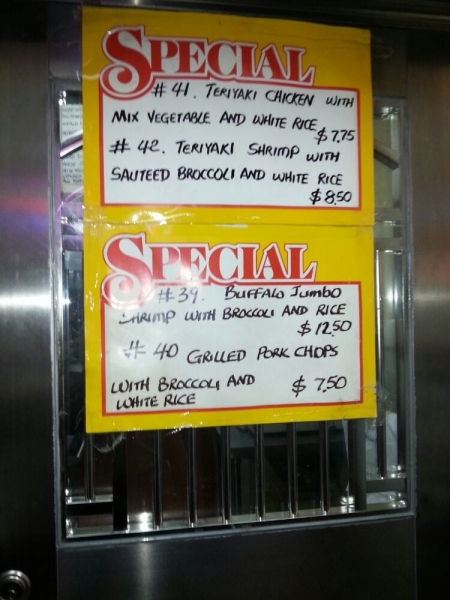 SPECIAL
# 41. TERIYAKI CHICKEN WITH
MIX VEGETABLE AND WHITE RICE
$7.75
# 42. TERIYAKI SHRIMP WITH
SAUTEED BROCCOLI AND WHITE RICE
$8.50
SPECIAL
#39. BUFFALO JUMBO
SHRIMP WITH BROCCOLI AND RICE
$12.50
# 40 GRILLED PORK CHOPS
WITH BROCCOLI AND $7.50
WHITE RICE